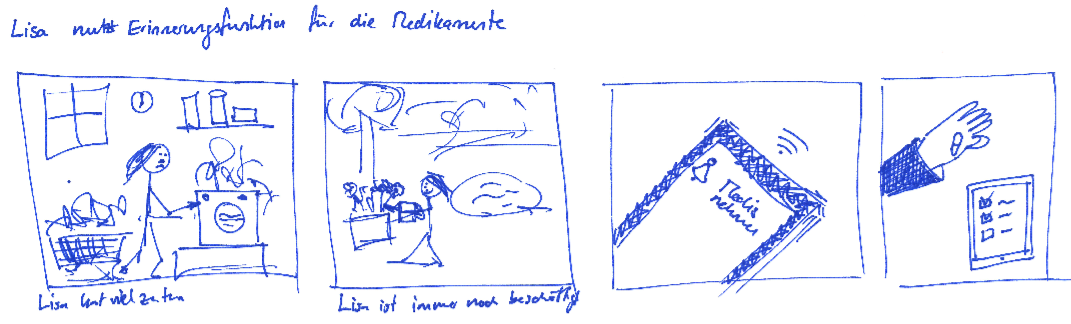 Lisa nutzt Erinnerungsfunktion für die Medikamente
Lisa hat viel zu tun
Lisa ist immer noch beschäftigt
Medis
nehmen